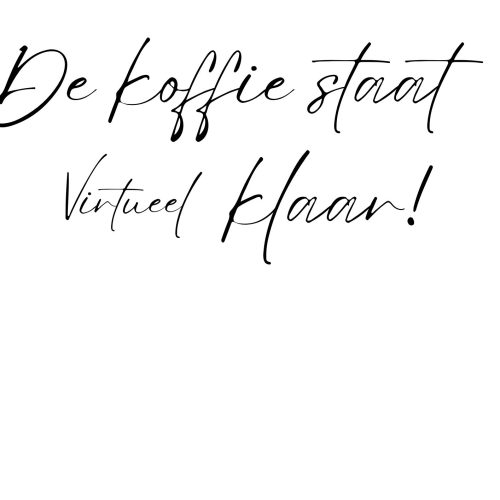 De koffie staat
Virtueel klaar!